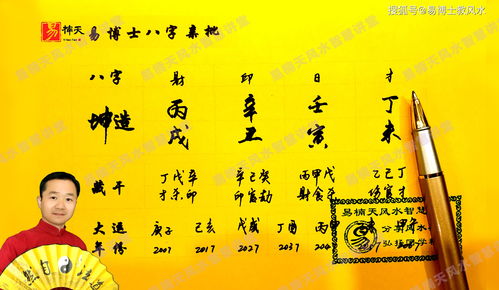 搜狐号@易博士教风水
楠天 易博士八字亲批
八字 财 印 日 才
坤造 丙戌 辛丑 壬寅 丁未
藏干 丁戊辛 辛己癸 丙甲戊 乙己丁
才杀印 印官劫 财食杀 伤官才
大运 庚子 己亥 戊戌 丁酉 丙申
年份 2007 2017 2027 2037
易楠天风水智慧